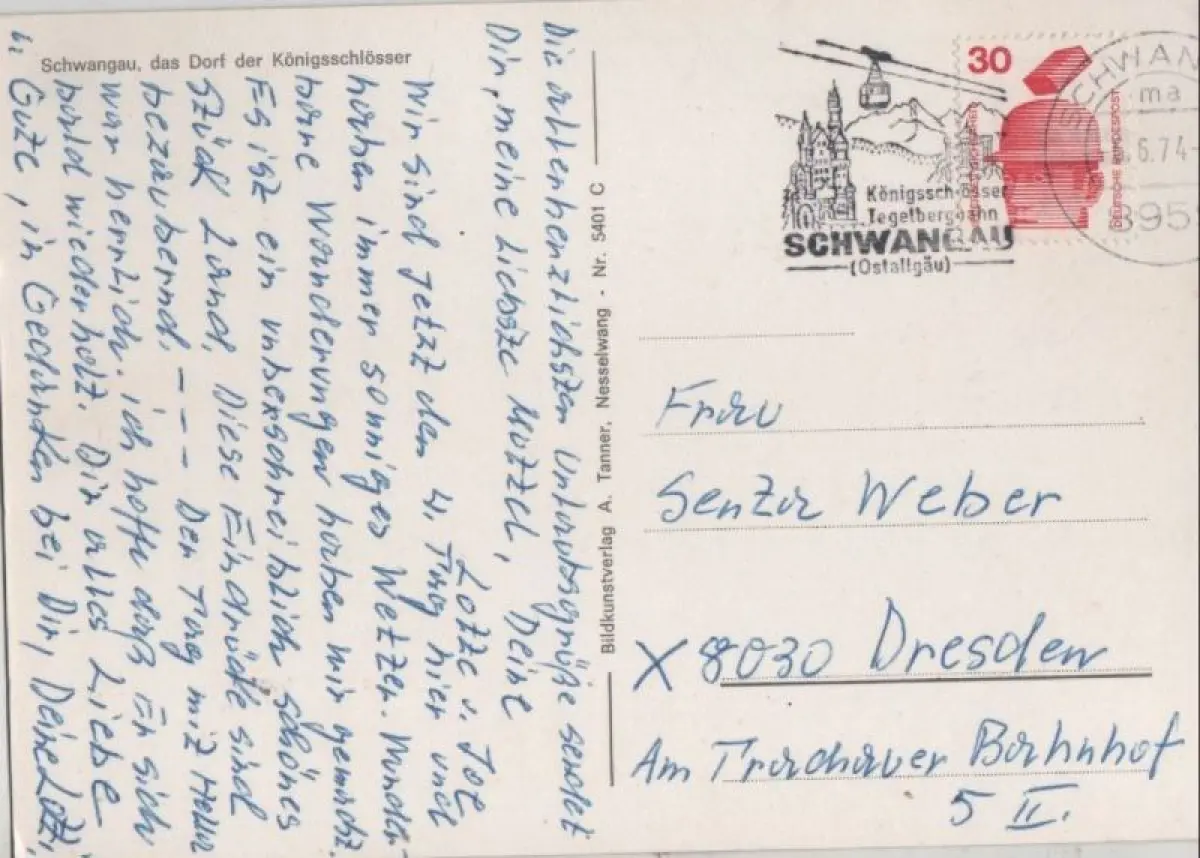 Schwangau, das Dorf der Königsschlösser
Die allerherzlichsten Urlaubsgrüße sendet
Dir, meine liebste Muttel, Deine
Lotte u. Joe
Wir sind jetzt den 4. Tag hier und
haben immer sonniges Wetter. Wunder-
bare Wanderungen haben wir gemacht.
Es ist ein unbeschreiblich schönes
Stück Land. Diese Eindrücke sind
bezaubernd. – – – Der Tag mit
war herrlich. ich hoffe daß Er sich
bald wiederholt. Dir alles Liebe
Gute, in Gedanken bei Dir, Deine
Bildkunstverlag A. Tanner, Nesselwang - Nr. 5401 C
Königsschlösser
Tegelbergbahn
SCHWANGAU
(Ostallgäu)
30
DEUTSCHE BUNDESPOST
SCHWAN
6.74-
895
Frau
Senta Weber
X 8030 Dresden
Am Trachauer Bahnhof
5 II.